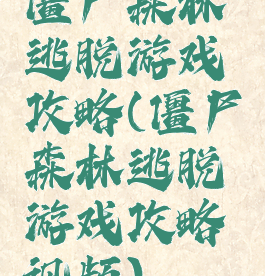 僵尸森林
逃脱游戏
攻略(僵尸
森林逃脱
游戏攻略
视频)